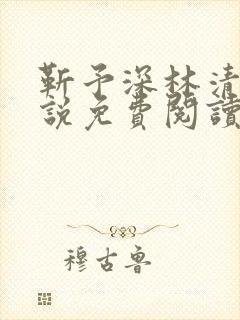 靳予深林清
說免費閱讀
穆古魯